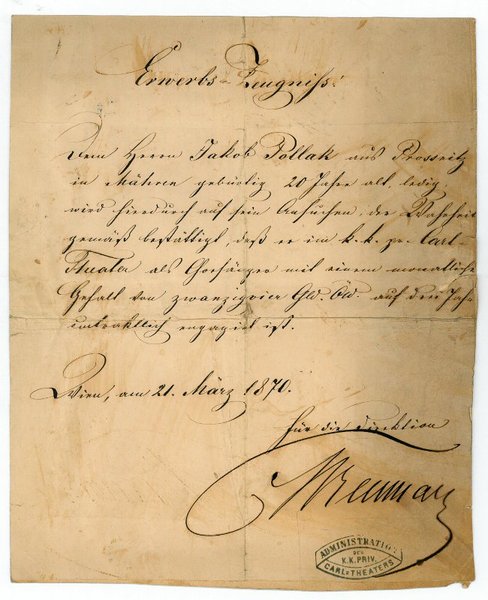 Erwerbs-Zeugniß.
Dem Herrn Jakob Pollak aus Prossnitz
in Mähren gebürtig 20 Jahre alt, ledig,
wird hierdurch auf sein Ansuchen, der Wahrheit
gemäß bestättigt, daß er im k. k. pr. Carl-
Theater als Chorsänger mit einem monatlichen
Gehalt von zwanzigvier Gld. Öw. auf drei Jahre
contraktlich engagirt ist.
Wien, am 21. März 1870.
Für die Direktion
ADMINISTRATION
DES
K.K. PRIV.
CARL-THEATERS